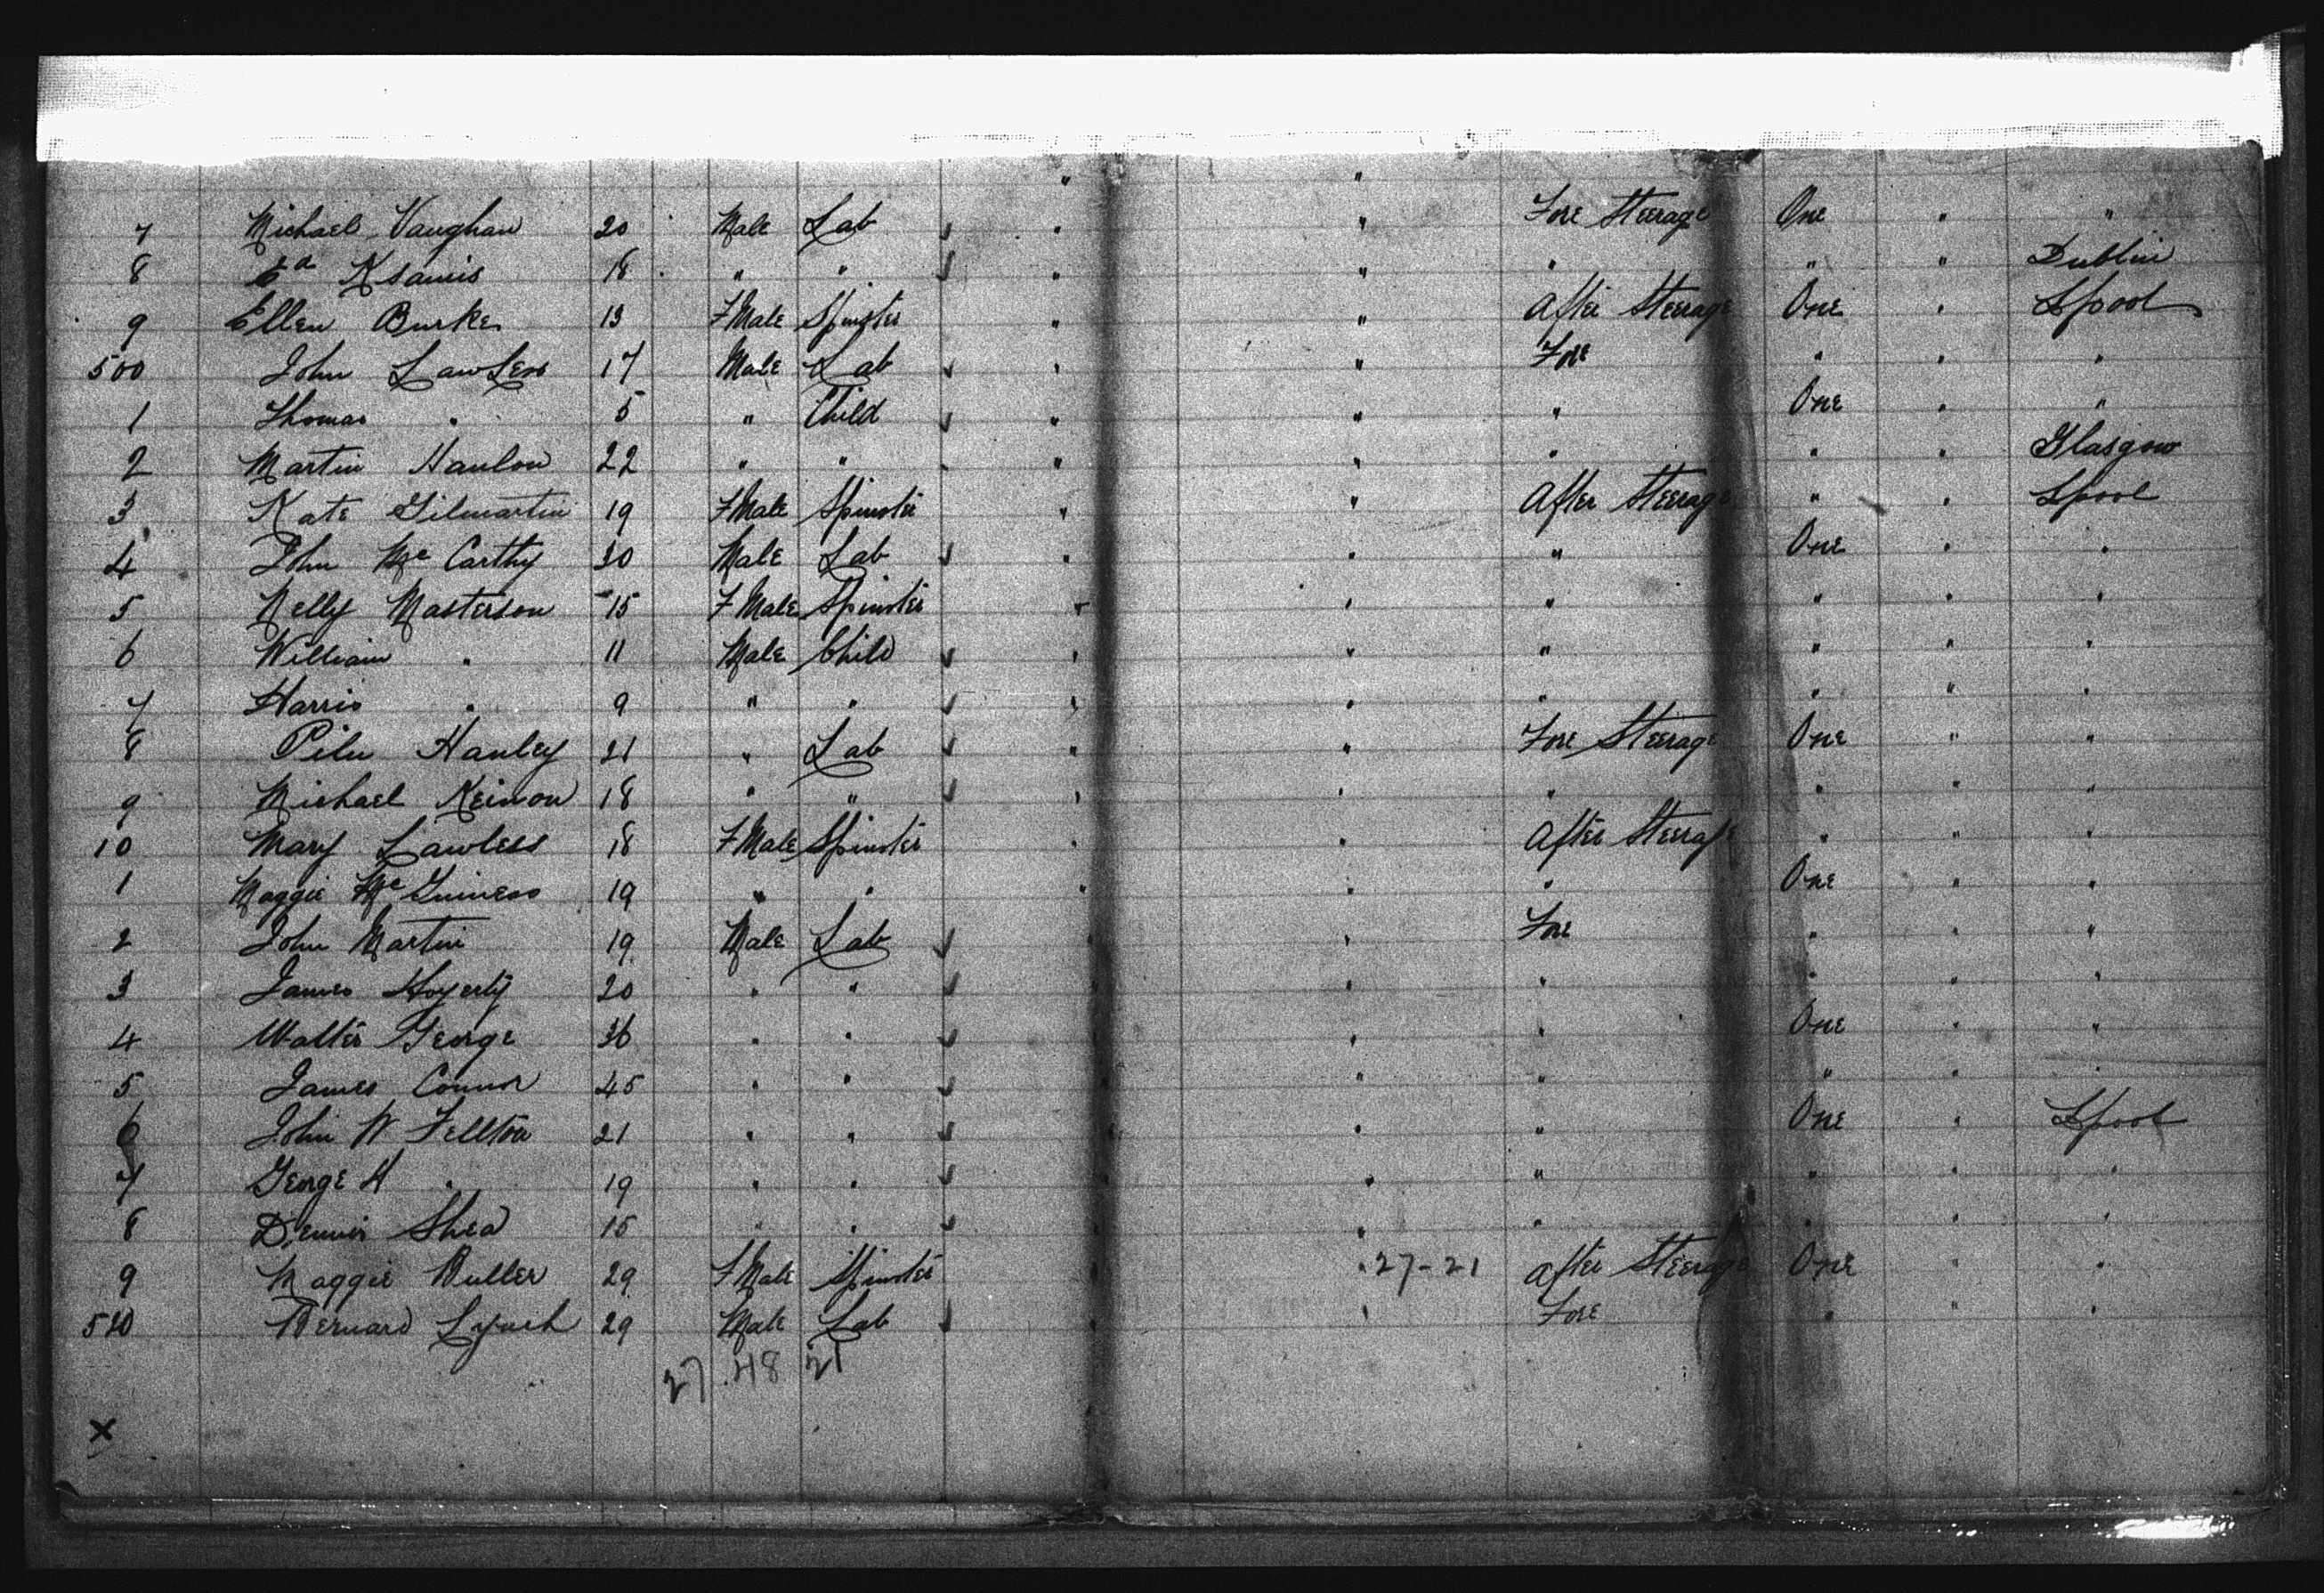 " "
7 Michael Vaughan 20 Male Lab " " Fore Steerage One " "
8 Ed 18 " " " " " " " Dublin
9 Ellen Burke 13 FMale Spinster " " After Steerage One " Lpool
500 John Lawless 17 Male Lab " " Fore " " "
1 Thomas " 5 " Child " " " One " "
2 Martin Hanlon 22 " " " " " " " Glasgow
3 Kate Gilmartin 19 FMale Spinster " " After Steerage " " Lpool
4 John Mc Carthy 30 Male Lab " " " One " "
5 Nelly Masterson 15 FMale Spinster " " " " " "
6 William " 11 Male Child " " " " " "
7 Harris " 9 " " " " " " " "
8 Hanley 21 " Lab " " Fore Steerage One " "
9 Michael 18 " " " " " " " "
10 Mary Lawless 18 FMale Spinster " " After Steerage " " "
1 Maggie Mc Guiness 19 " " " " " One " "
2 John Martin 19 Male Lab " " Fore " " "
3 James Hogerty 20 " " " " " " " "
4 Walter George 36 " " " " " One " "
5 James Connor 45 " " " " " " " "
6 John W Fellton 21 " " " " " One " Lpool
7 George H " 19 " " " " " " " "
8 Dennis Shea 15 " " " " " " " "
9 Maggie Buller 29 FMale Spinster " 27-21 After Steerage One " "
520 Bernard Lynch 29 Male Lab " " Fore " " "
27 48 21
X